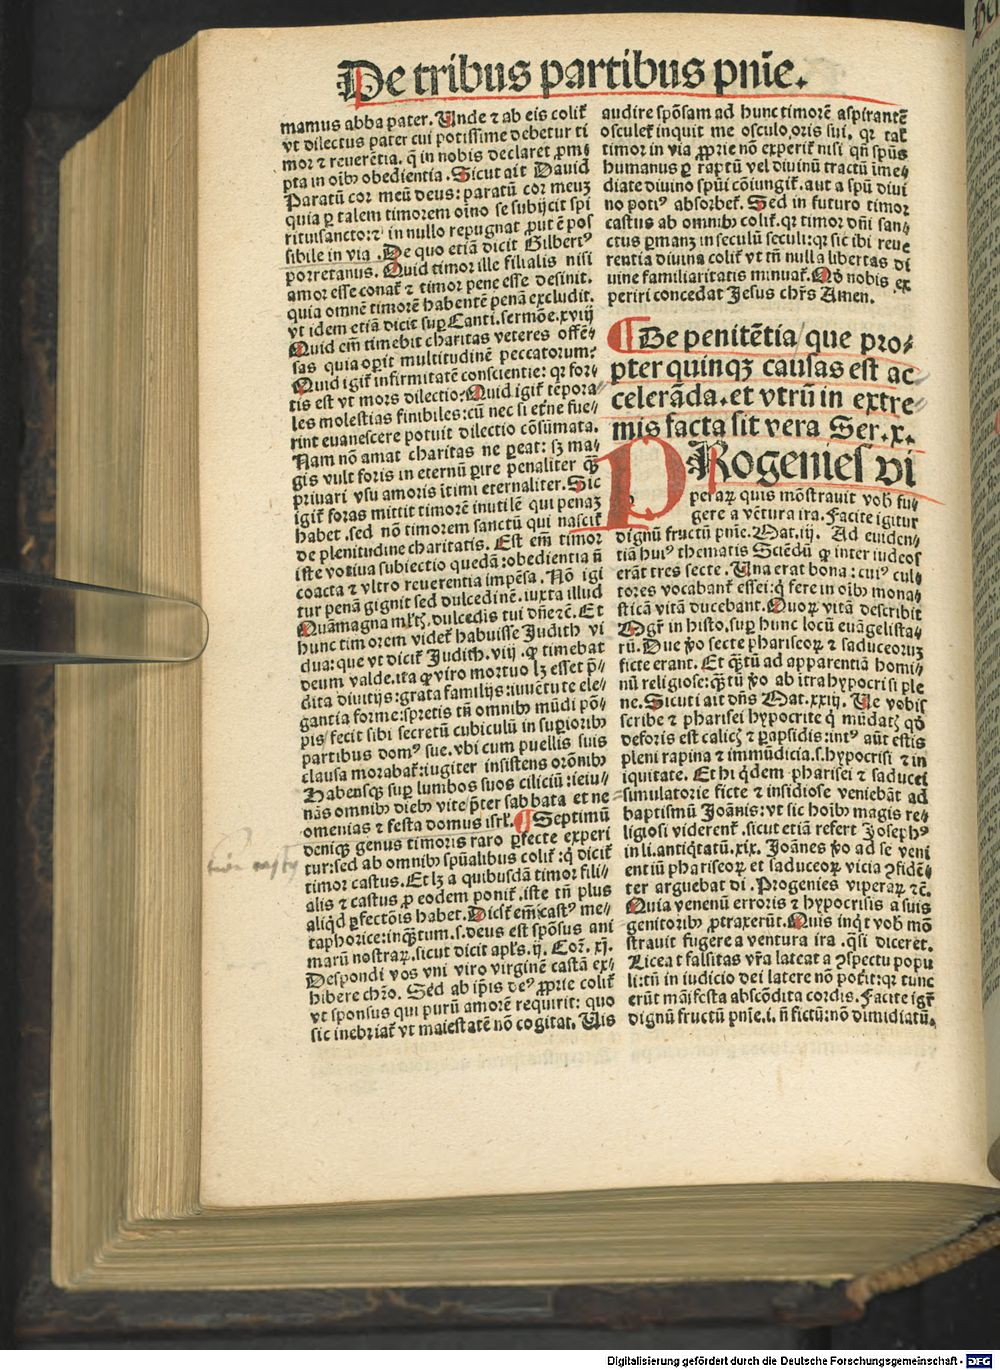 De tribus partibus pnīe.
mamus abba pater. Unde ⁊ ab eis colit᷑
vt dilectus pater cui potissime debetur ti
mor ⁊ reuerētia. q̄ in nobis declaret ꝓmi
pta in oīb⁹ obedientia. Sicut ait Dauid
Paratū cor meū deus: paratū cor meuꝫ
quia ꝑ talem timorem oīno se subijcit spi
rituisancto: ⁊ in nullo repugnat ꝓut ē pos
sibile in via. De quo etiā dicit Gilbert⁹
porretanus. Quid timor ille filialis nisi
amor esse conat᷑ ⁊ timor pene esse desinit.
quia omnē timorē habentē penā excludit.
vt idem etiā dicit suꝑ Canti. sermōe. xviij
Quid em̄ timebit charitas veteres offē⸗
sas quia oꝑit multitudinē peccatorum?
Quid igit᷑ infirmitatē conscientie: qꝛ for⸗
tis est vt mors dilectio. Quid igit᷑ tēpora⸗
les molestias finibiles: cū nec si et̄ne fue⸗
rint euanescere potuit dilectio cōsūmata.
Nam nō amat charitas ne ꝑeat: sꝫ ma⸗
gis vult foris in eternū ꝑire penaliter qͣꝫ
priuari vsu amoris ītimi eternaliter. Sic
igit᷑ foras mittit timorē inutilē qui penaꝫ
habet. sed nō timorem sanctū qui nascit᷑
de plenitudine charitatis. Est em̄ timor
iste votiua subiectio quedā: obedientia n̄
coacta ⁊ vltro reuerentia impēsa. Nō igi
tur penā gignit sed dulcedinē. iuxta illud
Quāmagna ml̄tꝫ. dulcedis tui dn̄e ⁊c̄. Et
hunc timorem videt᷑ habuisse Judith vi
dua: que vt dicit᷑ Judith. viij. ꝙ timebat
deum valde. ita ꝙ viro mortuo lꝫ esset p̄⸗
dita diuitijs: grata familijs: iuuētute ele⸗
gantia forme: spretis tn̄ omnib⁹ mūdi pō⸗
pis / fecit sibi secretū cubiculū in suꝑiorib⁹
partibus dom⁹ sue. vbi cum puellis suis
clausa morabat᷑: iugiter insistens orōnib⁹
Habensqꝫ suꝑ lumbos suos ciliciū: ieiu⸗
nās omnib⁹ dieb⁹ vite p̄ter sabbata et ne⸗
omenias ⁊ festa domus isrl̄. ¶ Septimū
deniqꝫ genus timoris raro ꝑfecte experi
tur: sed ab omnib⁹ spūalibus colit᷑: q̄ dicit᷑
timor castus. Et lꝫ a quibusdā timor fili⸗
alis ⁊ castus ꝓ eodem ponit᷑. iste tn̄ plus
aliqd̄ ꝑfectōis habet. Dicit᷑ em̄ cast⁹ me⸗
taphorice: inqͣꝫtum. s. deus est spōsus ani
marū nostraꝝ. sicut dicit apl̄s. ij. Coꝛ. xj.
Despondi vos vni viro virginē castā ex⸗
hibere chr̄o. Sed ab ip̄is de⁹ ꝓprie colit᷑
vt sponsus qui purū amorē requirit: quo
sic inebriat᷑ vt maiestatē nō cogitat. Uis
audire spōsam ad hunc timorē aspirantē
osculet᷑ inquit me osculo oris sui. qꝛ tal̄
timor in via ꝓprie nō experit᷑ nisi qn̄ spūs
humanus ꝑ raptū vel diuinū tractū īme⸗
diate diuino spūi cōiungit᷑. aut a spū diui
no poti⁹ absorbet᷑. Sed in futuro timor
castus ab omnib⁹ colit᷑. qꝛ timor dn̄i san⸗
ctus ꝑmanꝫ in seculū seculi: qꝛ sic ibi reue
rentia diuina colit᷑ vt tn̄ nulla libertas di
uine familiaritatis minuat᷑. Qḋ nobis ex
periri concedat Jesus chr̄s Amen.
¶ De penitētia / que pro⸗
pter quinqꝫ causas est ac
celerāda. et vtrū in extre⸗
mis facta sit vera Ser. x.
PRogenies vi
peraꝝ quis mōstrauit vob̄ fu⸗
gere a vētura ira. Facite igitur
dignū fructū pnīe. Mat. iij. Ad euiden⸗
tiā hui⁹ thematis Sciēdū ꝙ inter iudeos
erāt tres secte. Una erat bona: cui⁹ cul⸗
tores vocabant᷑ essei: q̇ fere in oīb⁹ mona⸗
sticā vitā ducebant. Quoꝝ vitā describit
Mgr̄ in histo. suꝑ hunc locū euāgelista⸗
rū. Due ꝟo secte phariseoꝝ ⁊ saduceoruꝫ
ficte erant. Et qͣꝫtū ad apparentiā homi⸗
nū religiose: qͣꝫtū ꝟo ab itra hypocrisi ple
ne. Sicuti ait dn̄s Mat. xxiij. Ue vobis
scribe ⁊ pharisei hypocrite q̇ mūdatꝫ qḋ
deforis est calicꝫ ⁊ ꝑapsidis: int⁹ aūt estis
pleni rapina ⁊ immūdicia. s. hypocrisi ⁊ in
iquitate. Et hi q̇dem pharisei ⁊ saducei
simulatorie ficte ⁊ insidiose veniebāt ad
baptismū Joānis: vt sic hoīb⁹ magis re⸗
ligiosi viderent᷑. sicut etiā refert Joseph⁹
in li. antiq̇tatū. xix. Joānes ꝟo ad se veni
entiū phariseoꝝ et saduceoꝝ vicia ꝯfidē⸗
ter arguebat di. Progenies viperaꝝ ⁊c̄.
Quia venenū erroris ⁊ hypocrisis a suis
genitorib⁹ ꝓtraxerūt. Quis inq̇t vob̄ mō
strauit fugere a ventura ira. q̄si diceret.
Licea t falsitas vr̄a lateat a ꝯspectu popu
li: tn̄ in iudicio dei latere nō pot̄it: qꝛ tunc
erūt māifesta abscōdita cordis. Facite igr̄
dignū fructū pnīe. i. n̄ fictū: nō dimidiatū.
Digitalisierung gefördert durch die Deutsche Forschungsgemeinschaft - DFG